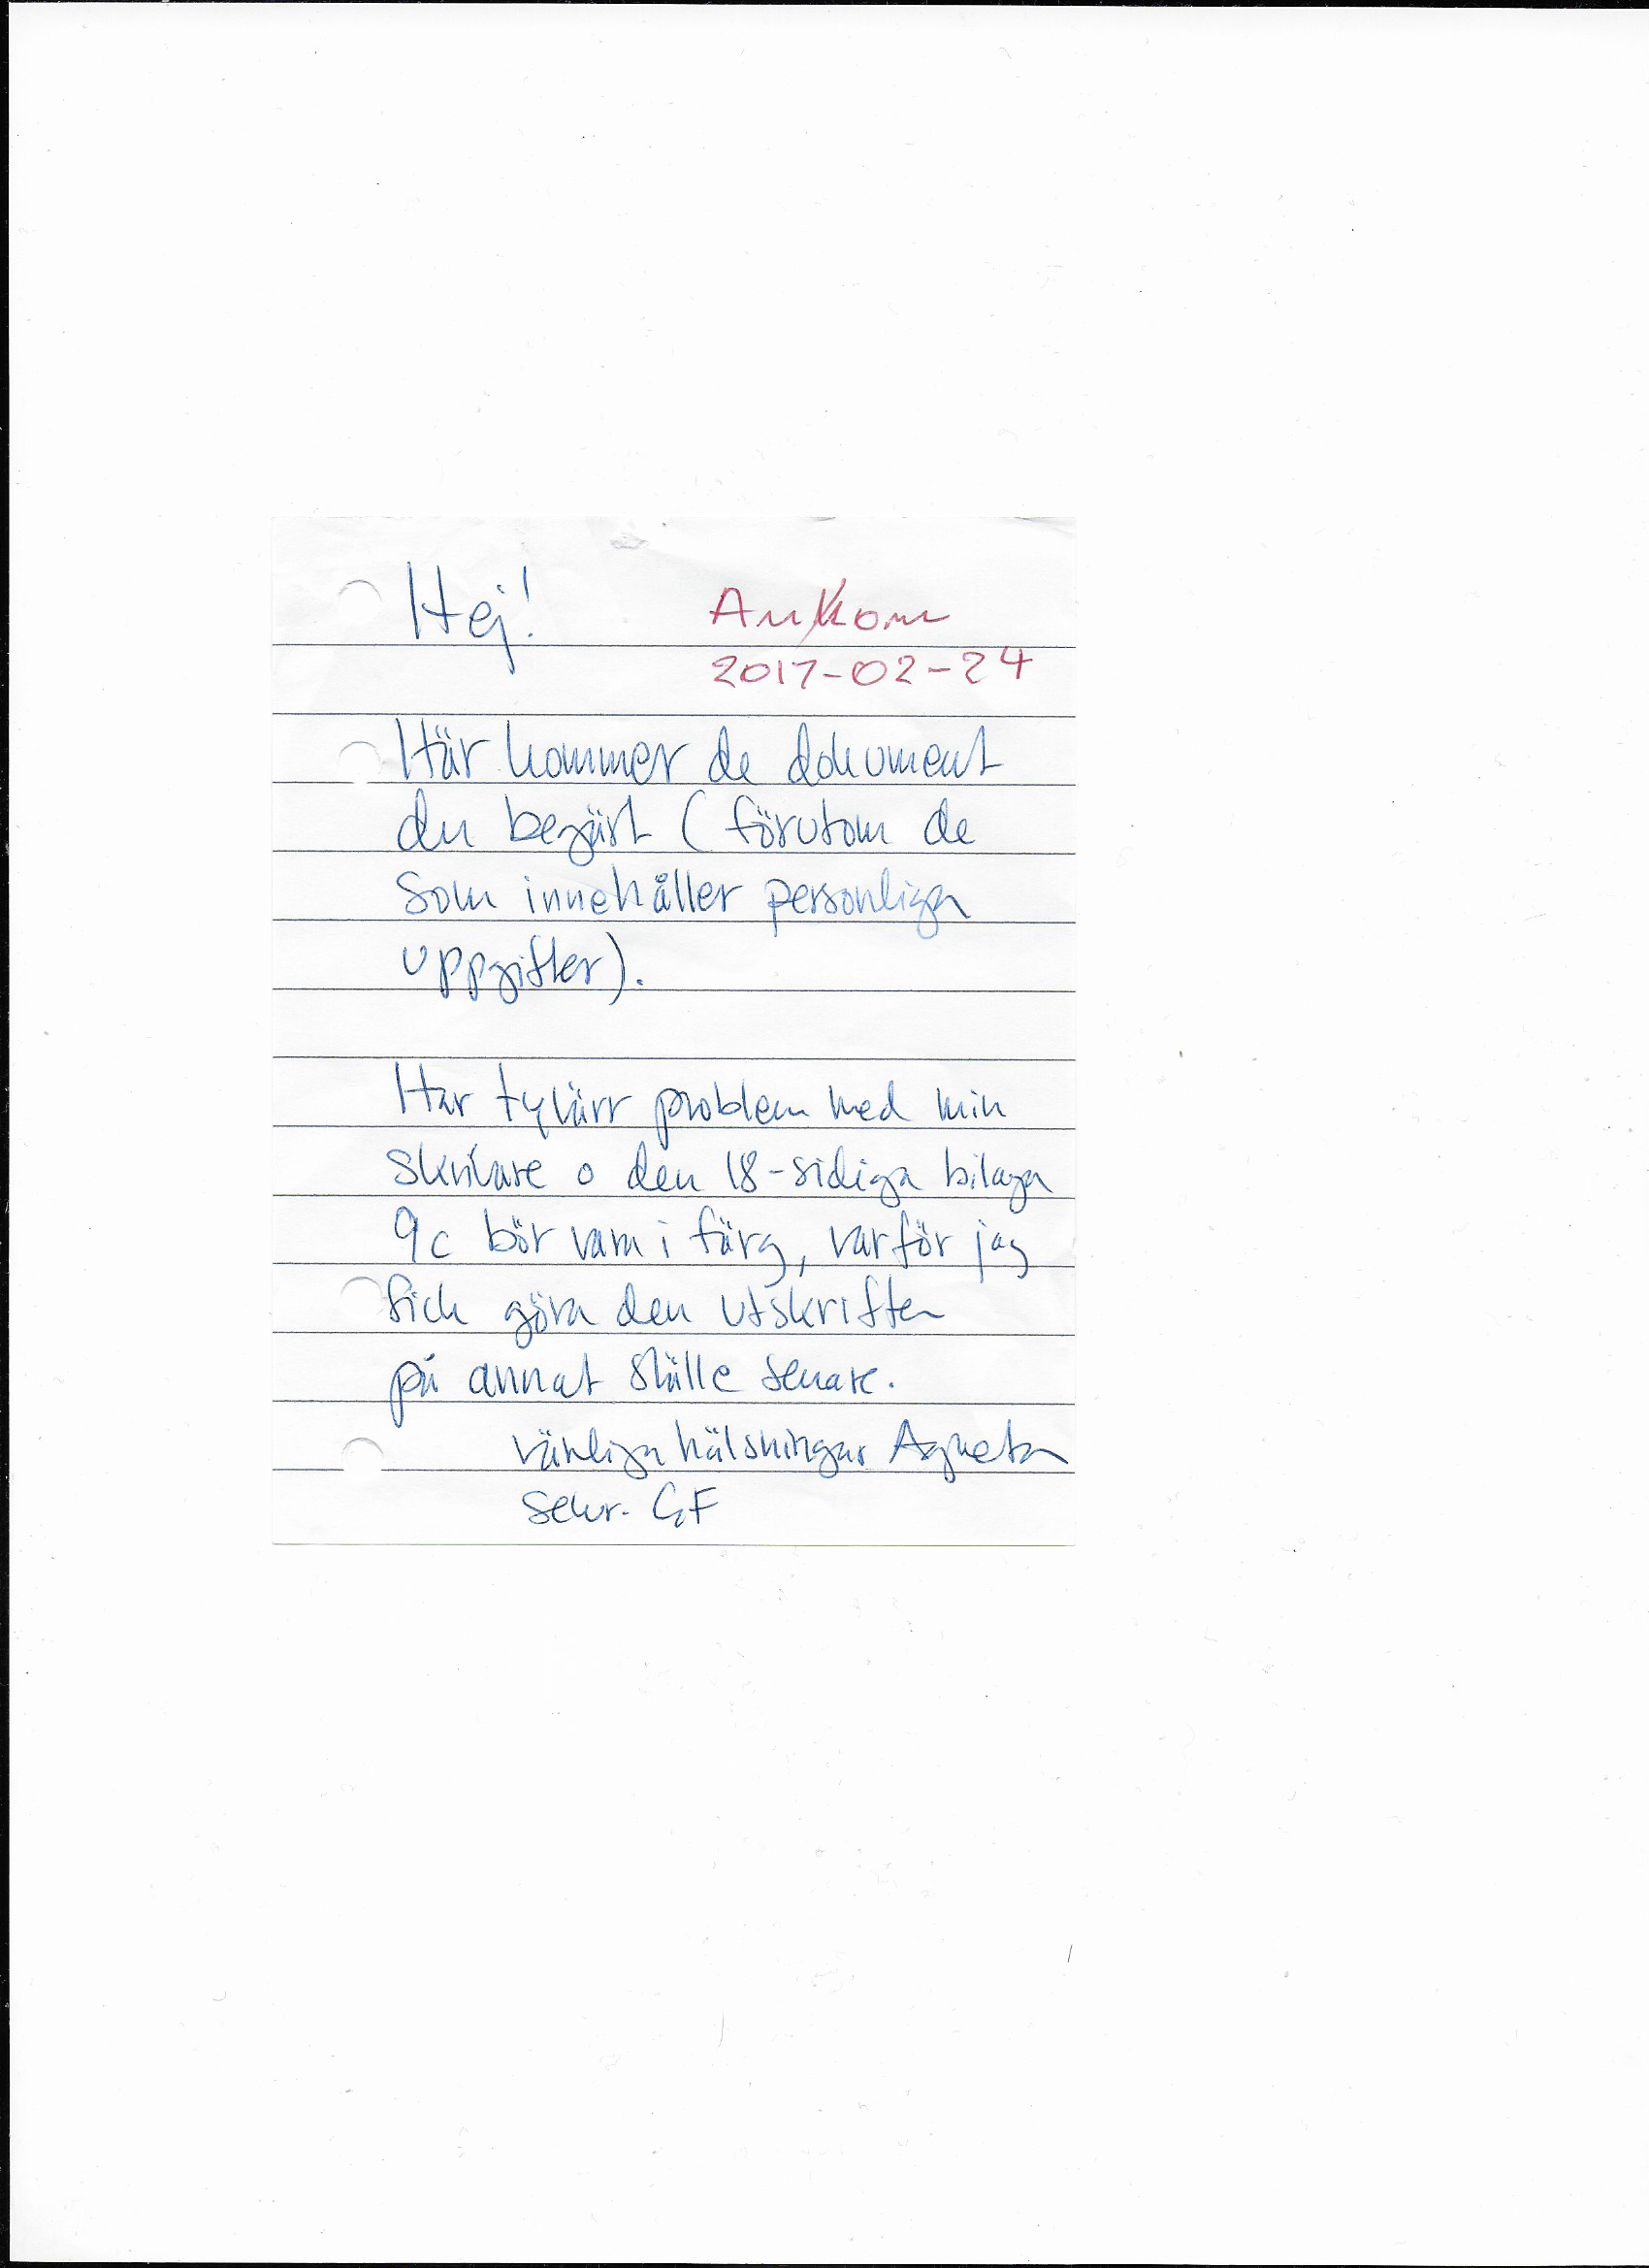 Hej!
Ankom
2017-02-24
Här kommer de dokument
du begärt (förutom de
som innehåller personliga
uppgifter).
Har tyvärr problem med min
skrivare o den 18-sidiga bilaga
9c bör vara i färg, varför jag
fick göra den utskriften
på annat ställe senare.
vänliga hälsningar Agneta
sekr. GF